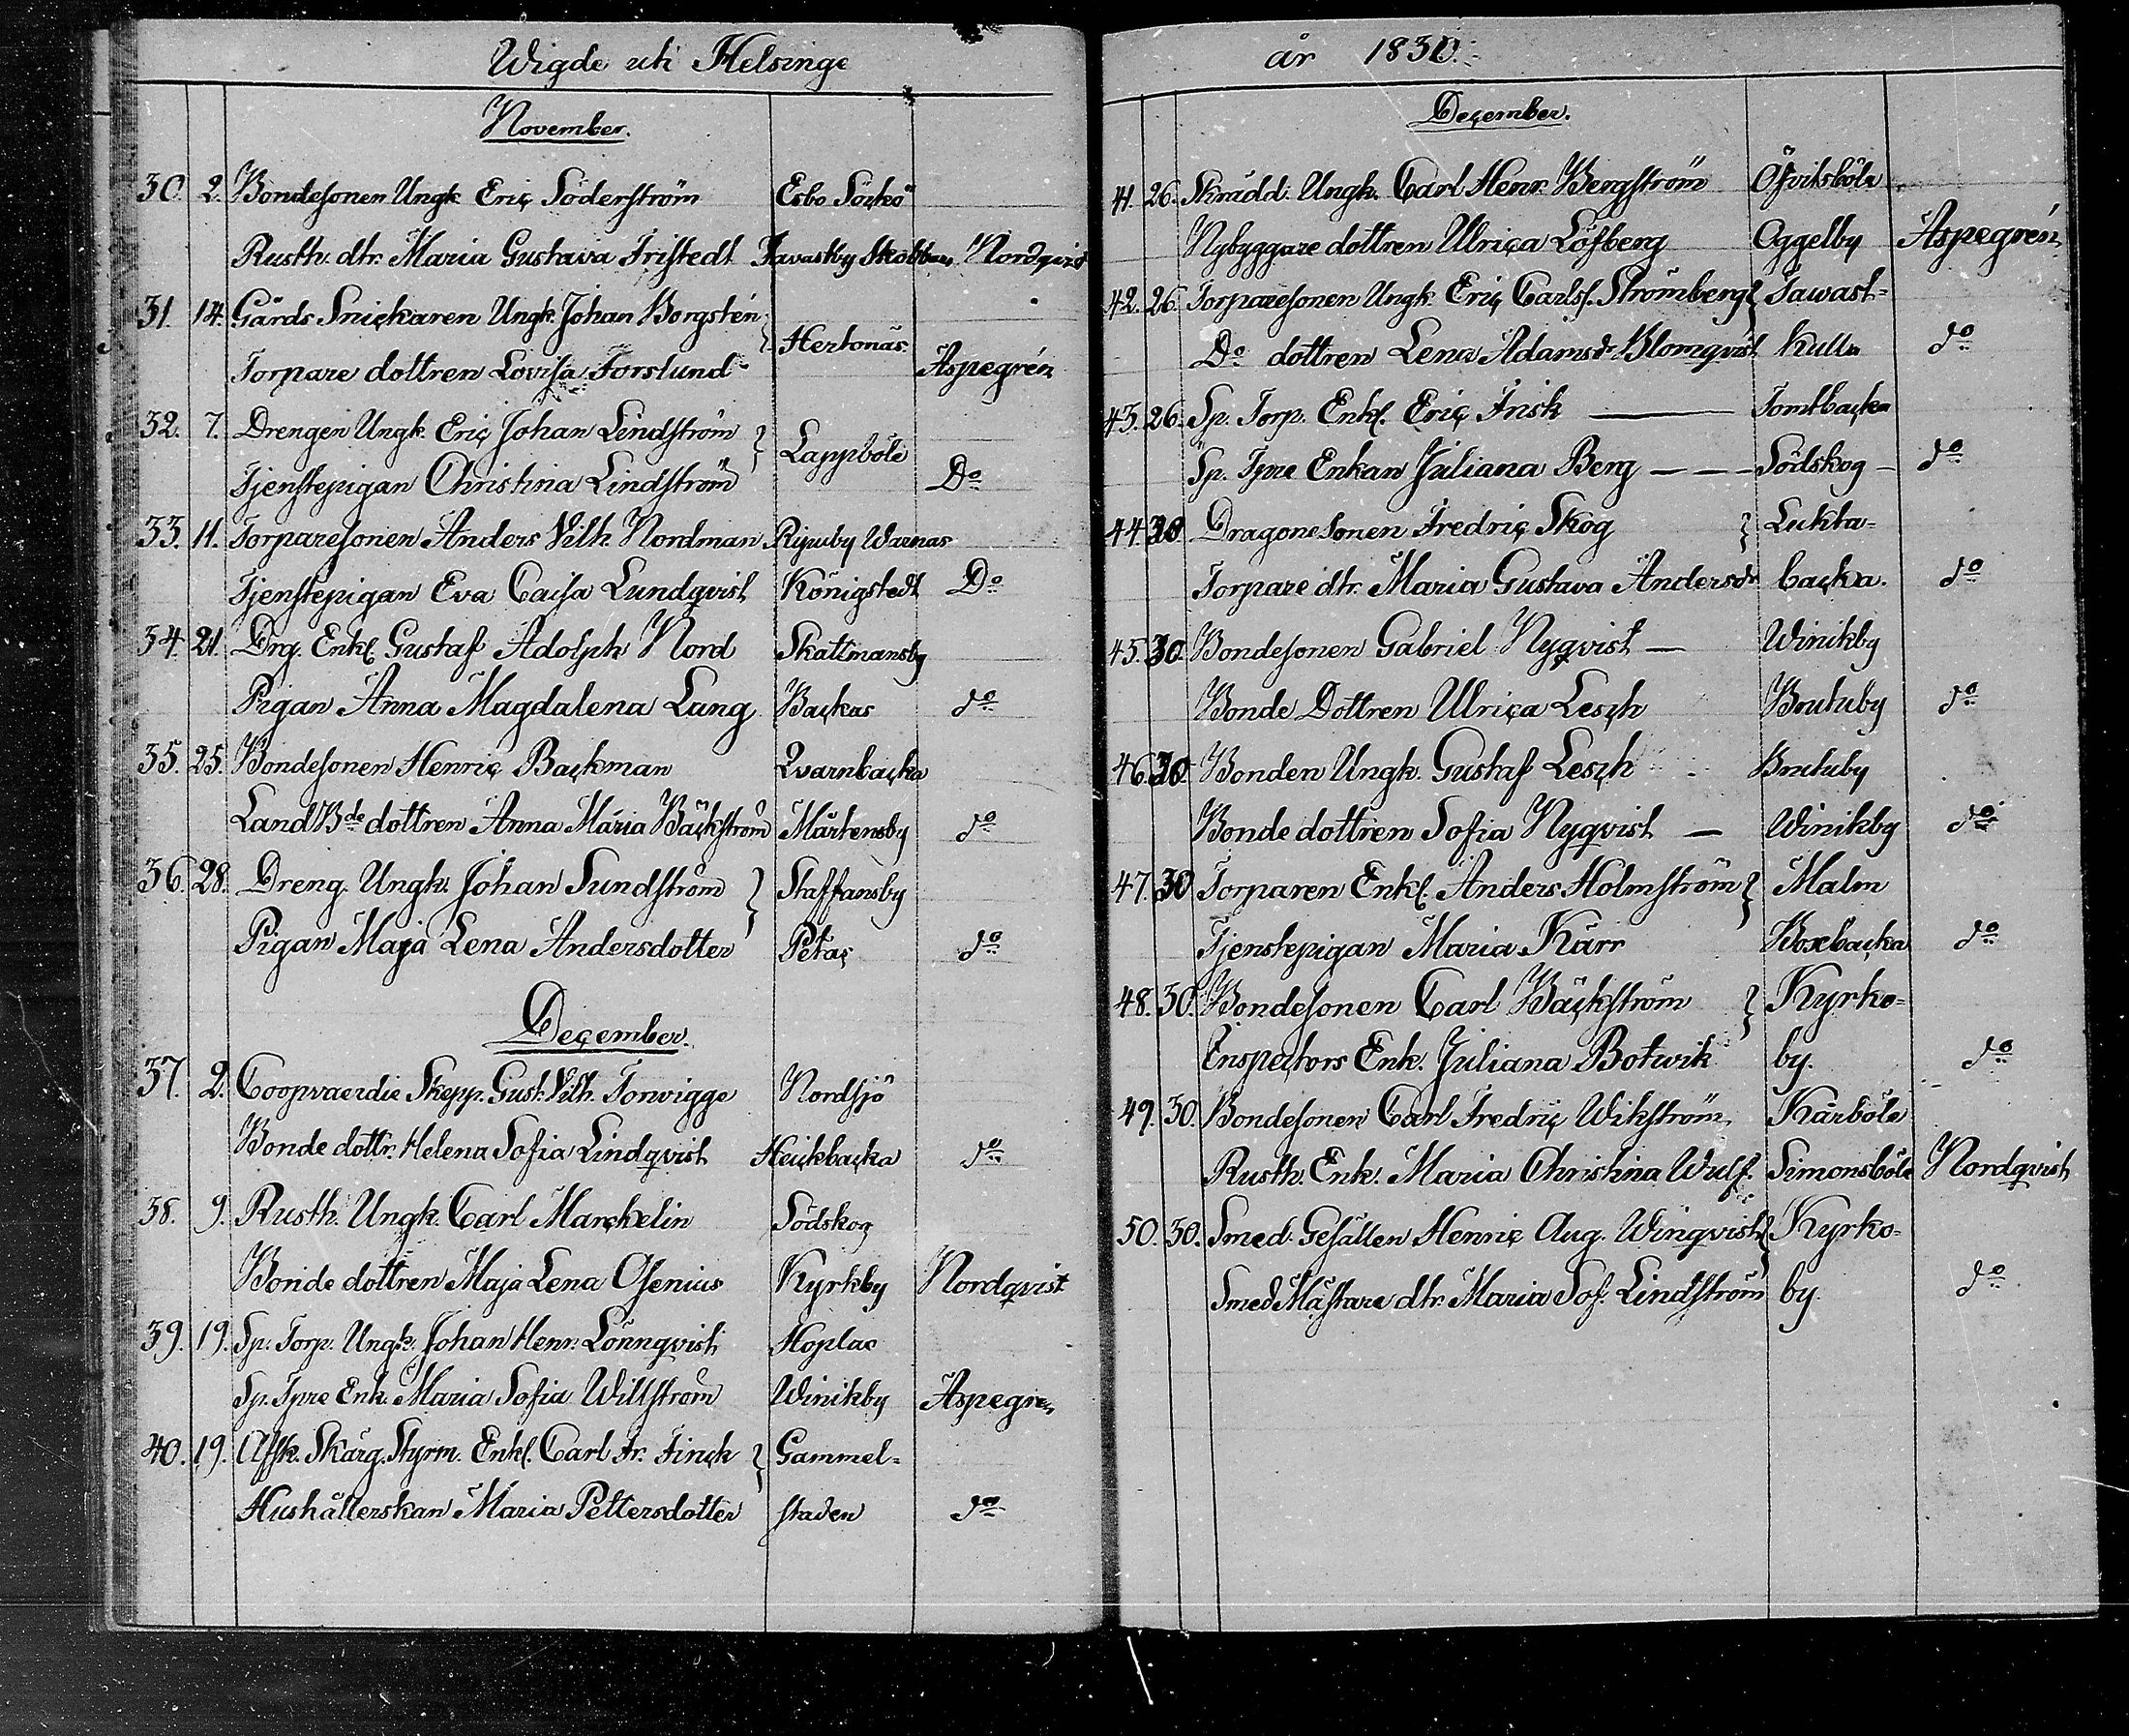 Wigde uti Helsinge
November.
30. 2. Bondesonen Ungk. Eric Söderström Esbo Sökö
Rusth. dtr. Maria Gustava Fristedt Tavastby Nordqvist
31. 14. Gårds Snickaren Ungk. Johan Borgstén } Hertonäs.
Torpare dottren Lovisa Forslund Aspegrén
32. 7. Drengen Ungk. Eric Johan Lindström } Lappböle
Tjenstepigan Christina Lindström Do
33. 11. Torparesonen Anders Vilh. Nordman Warnas
Tjenstepigan Eva Caisa Lundqvist Königstedt Do
34. 21. Drg. Enkl. Gustaf Adolph Nord Skattmansby
Pigan Anna Magdalena Lang Backas do
35. 25. Bondesonen Henric Backman Qvarnbacka
Land Bde dottren Anna Maria Bäckström Mårtensby do
36. 28. Dreng. Ungk. Johan Sundström } Staffansby
Pigan Maja Lena Andersdotter Petas do
December.
37. 2. Coopvaerdie Skepp. Gust. Vilh. Torwigge Nordsjö
Bonde dottr. Helena Sofia Lindqvist Heickbacka do
38. 9. Rusth. Ungk. Carl Marckelin Södskog
Bonde dottren Maja Lena Osenius Kyrkby Nordqvist
39. 19. Sp. Torp. Ungk. Johan Henr. Lönnqvist Hoplax
Sp. Tpre Enk. Maria Sofia Willström Winikby Aspegren
40. 19. Afsk. Skärg. Styrm. Enkl. Carl Fr. Finck } Gammel-
Hushållerskan Maria Pettersdotter staden do
år 1830.
December.
41. 26. Skrädd. Ungk. Carl Henr. Bergström Öfvitsböle
Nybyggare dottren Ulrica Löfberg Oggelby Aspegrén
42. 26. Torparesonen Ungk. Eric Carlss. Strömberg } Tawast-
Do dottren Lena Adamsdr Blomqvist kulla do
43. 26. Sp. Torp. Enkl. Eric Frisk — Tomtbacka
Sp. Tpre Enkan Juliana Berg — Södskog — do
44. 28 Dragonesonen Fredric Skog } Lukta-
Torpare dtr. Maria Gustava Andersdr backa. do
45. 30 Bondesonen Gabriel Nyqvist — Winikby
Bonde Dottren Ulrica Lesch Brutuby do
46. 30 Bonden Ungk. Gustaf Lesch Brutuby
Bonde dottren Sofia Nyqvist — Winikby do
47. 30 Torparen Enkl. Anders Holmström } Malm
Tjenstepigan Maria Kärr Boxbacka do
48. 30. Bondesonen Carl Bäckström } Kyrko-
Inspectors Enk. Juliana Botwik by. do
49. 30. Bondesonen Carl Fredric Wikström Kårböle
Rusth. Enk. Maria Christina Wulf. Simonsböle Nordqvist
50. 30. Smed. Gesällen Henric Aug. Winqvist } Kyrko-
Smed Mästare dtr. Maria Sof. Lindström by. do